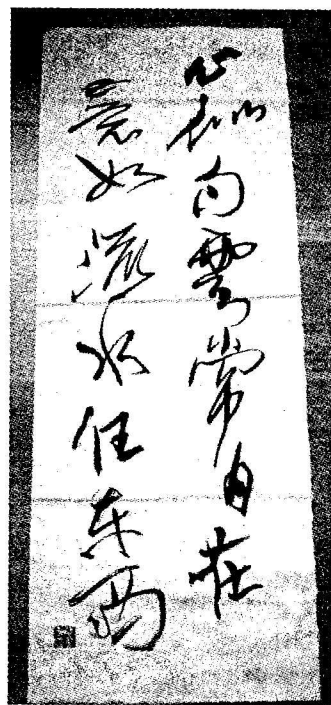 心似白雲常自在
意如流水任东西